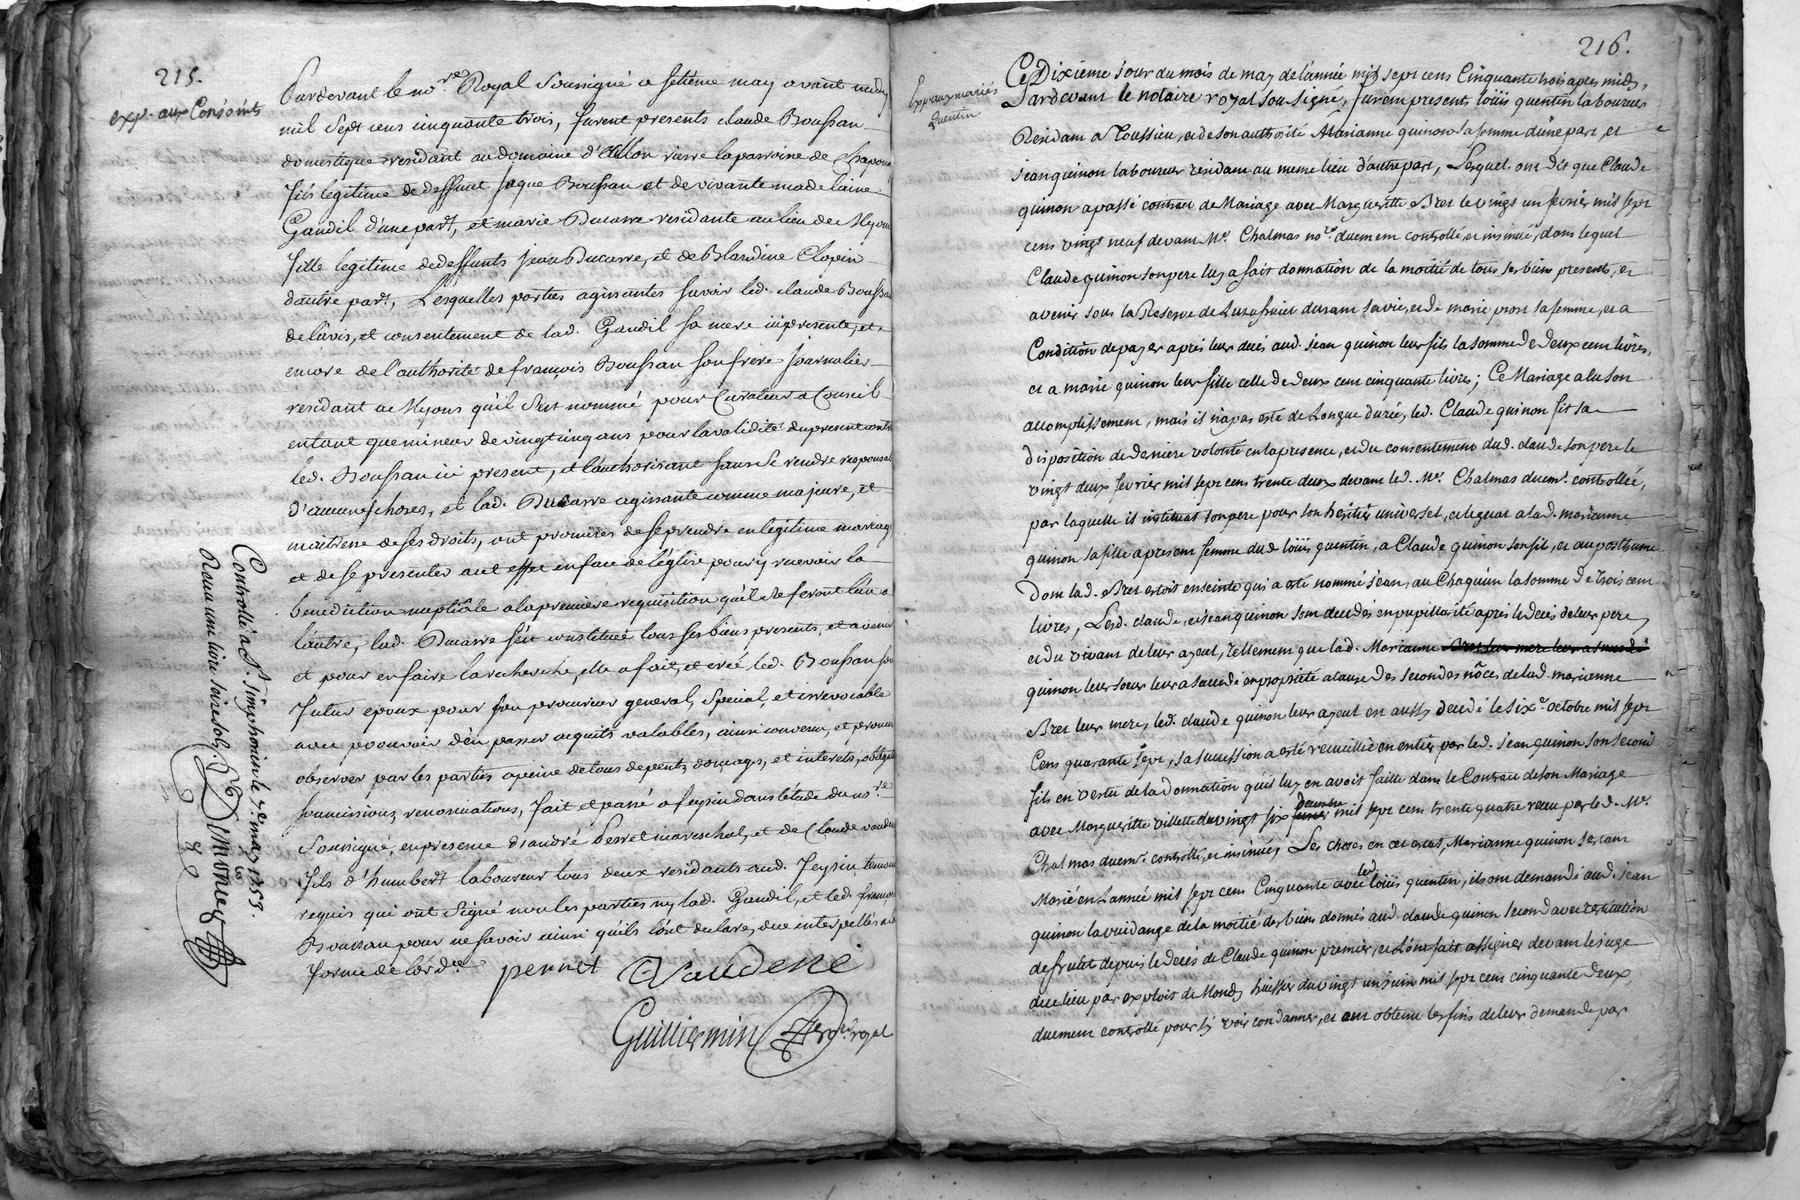 215.
exp. aux Conjoints
Pardevant le no.re Royal Soussigné a Setième may avant midy
mil Sept cens cinquante trois, furent presents claude Boussan
domestique residant au domaine d'Allon riere la parroisse de Chapona
fils legitime de deffunt Jaque Boussan et de vivante madelaine
Gaudil d'une part, et marie Ducarre residante au lieu de Myons
fille legitime de deffunts Jean Ducarre, et de Blandine Clopin
d'autre part, Lesquelles parties agissantes savoir led. claude Boussan
de l'avis, et consentement de lad. Gaudil sa mere icy presente, et
encore de l'authorité de françois Boussan son frere Journalier
residant a Myons qu'il s'est nommé pour Curateur a Conseil
entant que mineur de vingt cinq ans pour la validité du present contrat
led. Boussan ici present, et l'authorisant sans se rendre responsable
d'aucunes choses, et lad. Ducarre agissante comme majeure, et
maitresse de ses droits, ont promises de se prendre en legitime mariage
et de se presenter a cet effet en face de l'église pour y recevoir la
benediction nuptiale a la premiere requisition qu'il se feront l'un a
l'autre, lad. Ducarre s'est constitué tous ses biens presents, et a venir
et pour en faire la recherche, elle a fait, et créé led. Boussan son
futur epoux pour son procureur general, special, et irrevocable
avec pouvoir d'en passer acquits valables, ainsi convenu, et promis
observer par les parties a peine de tous depents, domages, et interets, obligations
soumissions, renonciations, fait et passé a feysin dans l'étude du no.re
Soussigné, en presence d'andré Perret mareschal, et de Claude vaudene
fils d'humbert laboureur tous deux residants aud. feysin temoins
requis qui ont signé non les parties ny lad. Gaudil, et led. françois
Boussan pour ne savoir ainsi qu'ils l'ont declare, due interpellés a la
forme de l'ord.ce perret C Vaudene
Guilliermin no.re royal
Controllé a St. simphorien le 7.e may 1753.
Receu une livre seize sols.
216.
Exp. aux mariés
Quentin
Ce Dixieme Jour du mois de may de l'année mil sept cens Cinquante trois apres midy,
Pardevant le notaire royal sousigné, furent presents loüis quentin laboureur
Residant a Toussieu, et de son authorité Marianne quinon sa femme d'une part, et
jean quinon laboureur residant au meme lieu d'autre part, Lesquels ont dit que Claude
quinon a passé contract de Mariage avec Margueritte Bret le vingt un fevrier mil sept
cens vingt neuf devant M.e Chalmas no.re duement controllé, et insinué, dans lequel
Claude quinon son pere luy a fait donnation de la moitié de tous ses biens presents, et
avenir sous la Reserve de l'usufruit durant sa vie, et de marie sa femme, et a
Condition de payer après leur decés aud. jean quinon leur fils la somme de deux cent livres,
et a marie quinon leur fille celle de deux cent cinquante livres; Ce Mariage a eu son
accomplissement, mais il n'a pas esté de Longue durée, led. Claude quinon fit sa
disposition de derniere volonté en la presence, et du consentement dud. claude son pere le
vingt deux fevrier mil sept cens trente deux devant led. M.e Chalmas duem.t controllée,
par laquelle il institua son pere pour son heritier universel, et legua a lad. marianne
quinon sa fille a present femme dud. loüis quentin, a Claude quinon son fils, et au posthume
dont lad. Bret estoit enceinte qui a esté nommé jean, au Chaquun la somme de trois cent
livres, Lesd. claude, et jean quinon sont decedés en pupillarité après le decés de leur pere,
et du vivant de leur ayeul, tellement que lad. Marianne
quinon leur soeur leur a succedé en proprieté a cause des secondes nôces de lad. marianne
Bret leur mere, led. claude quinon leur ayeul en aussy decedé le six.e octobre mil sept
Cens quarante sept, sa succession a esté recueillie en entier par led. jean quinon son second
fils en vertu de la donnation qu'il luy en avoit faitte dans le Contract de son Mariage
avec Margueritte villette du vingt six decembre mil sept cens trente quatre receu par led. M.e
Chalmas duem.t controllé, et insinué; Les choses en cet estat, Marianne quinon s'estant
Marié en L'année mil sept cens Cinquante avec led. loüis quentin, ils ont demandé aud. jean
quinon la vuidange de la moitié des biens donnés aud. claude quinon second avec restitution
de fruits depuis le decés de Claude quinon premier, et L'ont fait assigner devant le juge
du lieu par exploit de Mondy huissier du vingt un juin mil sept cens cinquante deux,
duement controllé pour s'y voir condamner, et ont obtenu les fins de leur demande par